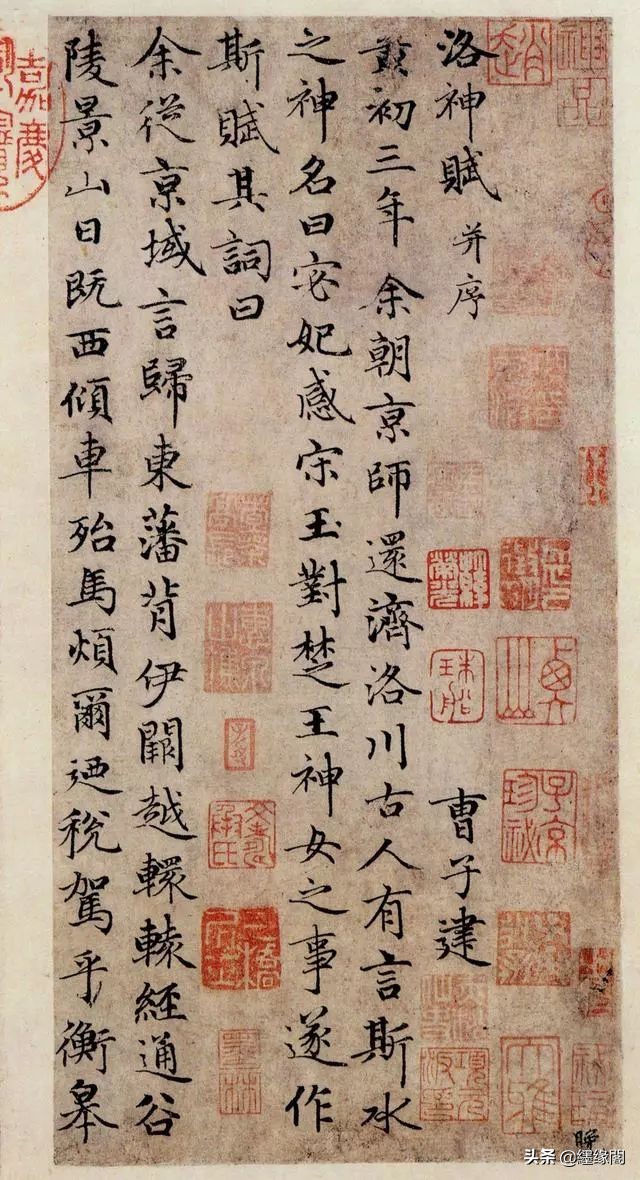 神品
洛神賦 并序 曹子建
黃初三年余朝京師還濟洛川古人有言斯水
之神名曰宓妃感宋玉對楚王神女之事遂作
斯賦其詞曰
余從京域言歸東藩背伊闕越轘轅經通谷
陵景山日既西傾車殆馬煩爾迺稅駕乎衡皋
子京珍秘
墨林
嘉慶
头条